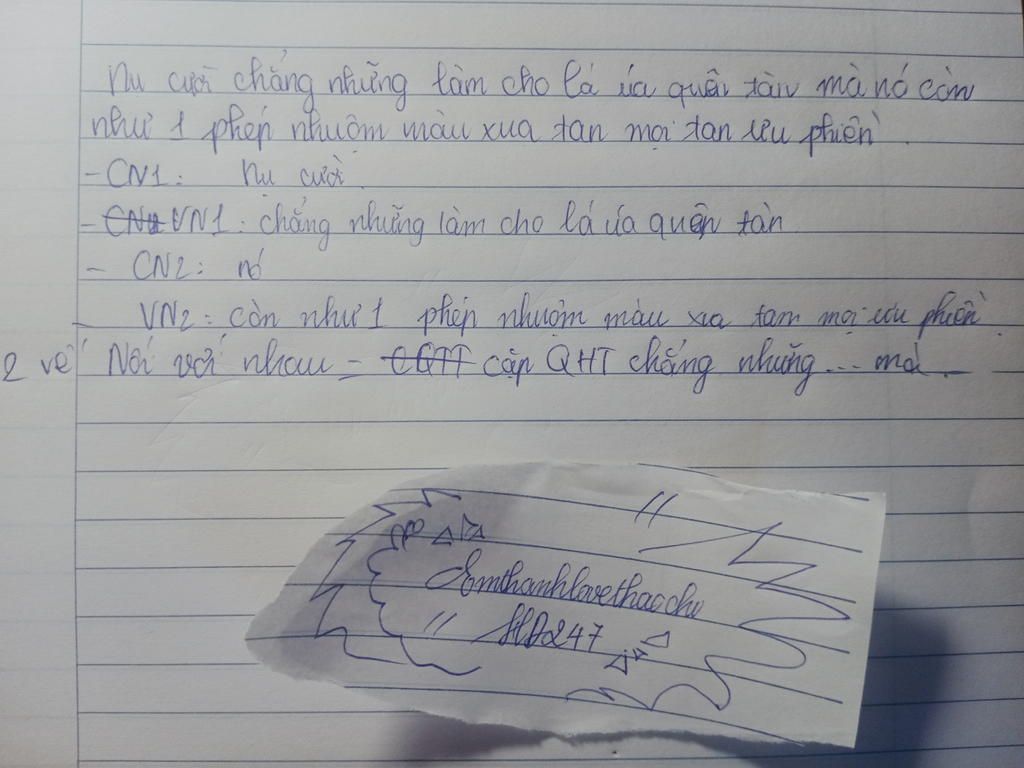 Nụ cười chẳng những làm cho lá úa quên tàn mà nó còn
như 1 phép nhuộm màu xua tan mọi tan ưu phiền
- CN1: Nụ cười.
- CN2 VN1: chẳng những làm cho lá úa quên tàn
- CN2: nó
VN2: còn như 1 phép nhuộm màu xua tam mọi ưu phiền.
2 vế Nối với nhau = CQTT cặp QHT chẳng những ... mà
Emthanhlovethaochu
HD247